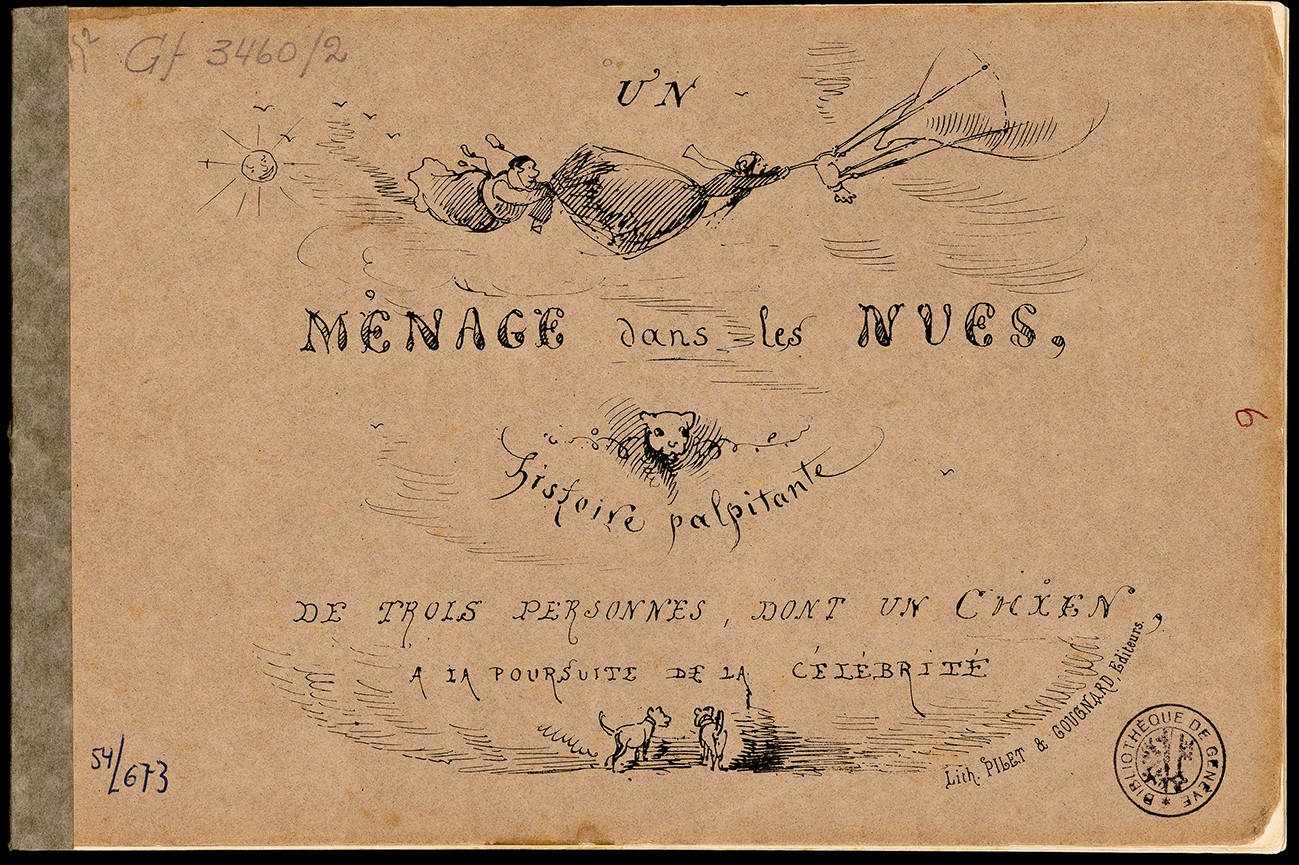 Gf 3460/2
UN
MÉNAGE dans les NUES,
histoire palpitante
DE TROIS PERSONNES, DONT UN CHIEN,
A LA POURSUITE DE LA CÉLÉBRITÉ
Lith. PILET & COUGNARD, Editeurs.
54/673
BIBLIOTHÈQUE DE GENÈVE *